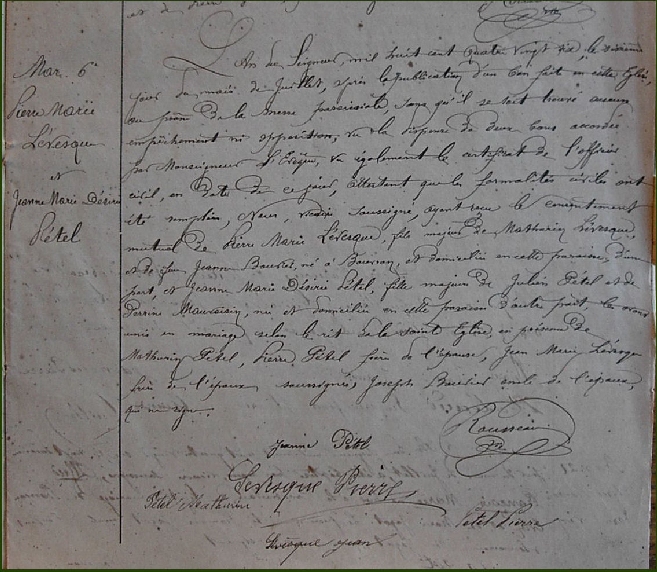 Mar. 6e
Pierre Marie
Lévesque
et
Jeanne Marie Désirée
Pétel
L'an du Seigneur, mil huit cent quatre vingt six, le
jour du mois de Juillet, après la publication d'un ban fait en cette Eglise,
au prône de la messe paroissiale sans qu'il se soit trouvé aucun
empêchement ni opposition; vu la dispense de deux bans accordée
par Monseigneur l'Evêque, vu également le certificat de l'officier
civil, en date de ce jour, attestant que les formalités civiles ont
été remplies, Nous, soussigné, ayant reçu le consentement
mutuel de Pierre Marie Lévesque, fils majeur de Mathurin Lévesque,
et de Jeanne né à et domicilié en cette paroisse, d'une
part, et Jeanne Marie Désirée Pétel, fille majeure de Julien Pétel et de
Perrine née et domiciliée en cette paroisse d'autre part les avons
unis en mariage selon le rit de la sainte Eglise, en présence de
Mathurin Pétel, Pierre Pétel frère de l'épouse, Jean Marie Lévesque
frère de l'époux soussignés, Joseph oncle de l'époux,
qui ne signe.
Rousseau
Jeanne Pétel
Levesque Pierre
Pétel Mathurin
Petel Pierre
Levesque jean